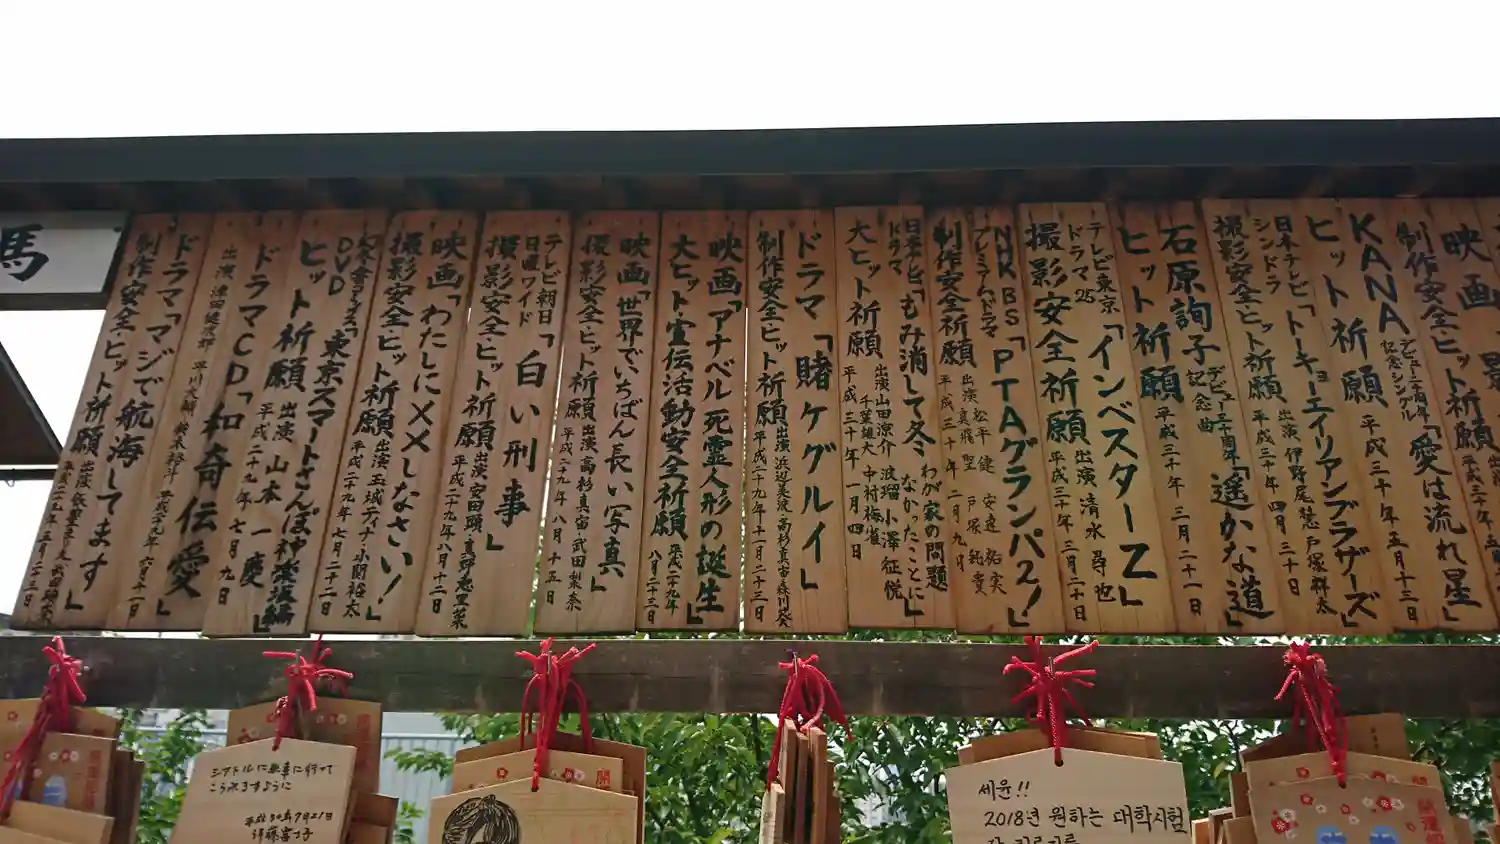 映画
制作安全・ヒット祈願
KANA デビュー二十周年記念シングル「愛は流れ星」
ヒット祈願 平成三十年 五月十三日
日本テレビ「トーキョーエイリアンブラザーズ」
シンドラ
撮影安全ヒット祈願 出演 伊野尾慧 戸塚祥太
平成三十年 四月三十日
石原詢子 デビュー三十周年記念曲「遙かな道」
ヒット祈願 平成三十年 三月二十一日
テレビ東京「インベスターZ」
ドラマ25
撮影安全祈願 出演 清水 尋也
平成三十年 三月二十日
NHK BS「PTAグランパ2!」
プレミアムドラマ
制作安全祈願 出演 松平 健 安達 祐実
真飛 聖 戸塚 純貴
平成三十年 二月九日
日本テレビ「もみ消して冬 わが家の問題なかったことに」
ドラマ
大ヒット祈願 出演 山田涼介 波瑠 小澤 征悦
千葉雄大 中村梅雀
平成三十年 一月四日
ドラマ「賭ケグルイ」
制作安全ヒット祈願 出演 浜辺美波 高杉真宙 森川葵
平成二十九年 十一月二十三日
映画「アナベル 死霊人形の誕生」
大ヒット・宣伝活動安全祈願 平成二十九年
八月二十三日
映画「世界でいちばん長い写真」
撮影安全・ヒット祈願 出演 高杉真宙・武田梨奈
平成二十九年 八月十五日
テレビ朝日「白い刑事」
日曜ワイド
撮影安全・ヒット祈願 出演 安田顕・真野恵里菜
平成二十九年 八月十二日
映画「わたしに××しなさい!」
撮影安全・ヒット祈願 出演 玉城ティナ・小関裕太
平成二十九年 七月二十二日
DVD「東京スマートさんぽ 神発坂編」
ヒット祈願 出演 山本 一慶
平成二十九年 七月九日
ドラマCD「和奇伝愛」
出演 津田健次郎 平川大輔 鈴木裕斗
ドラマ「マジで航海してます」
制作安全・ヒット祈願
馬
シアトルに無事に行って
こられますように
平成30年7月21日
세윤!!
2018년 원하는 대학시험